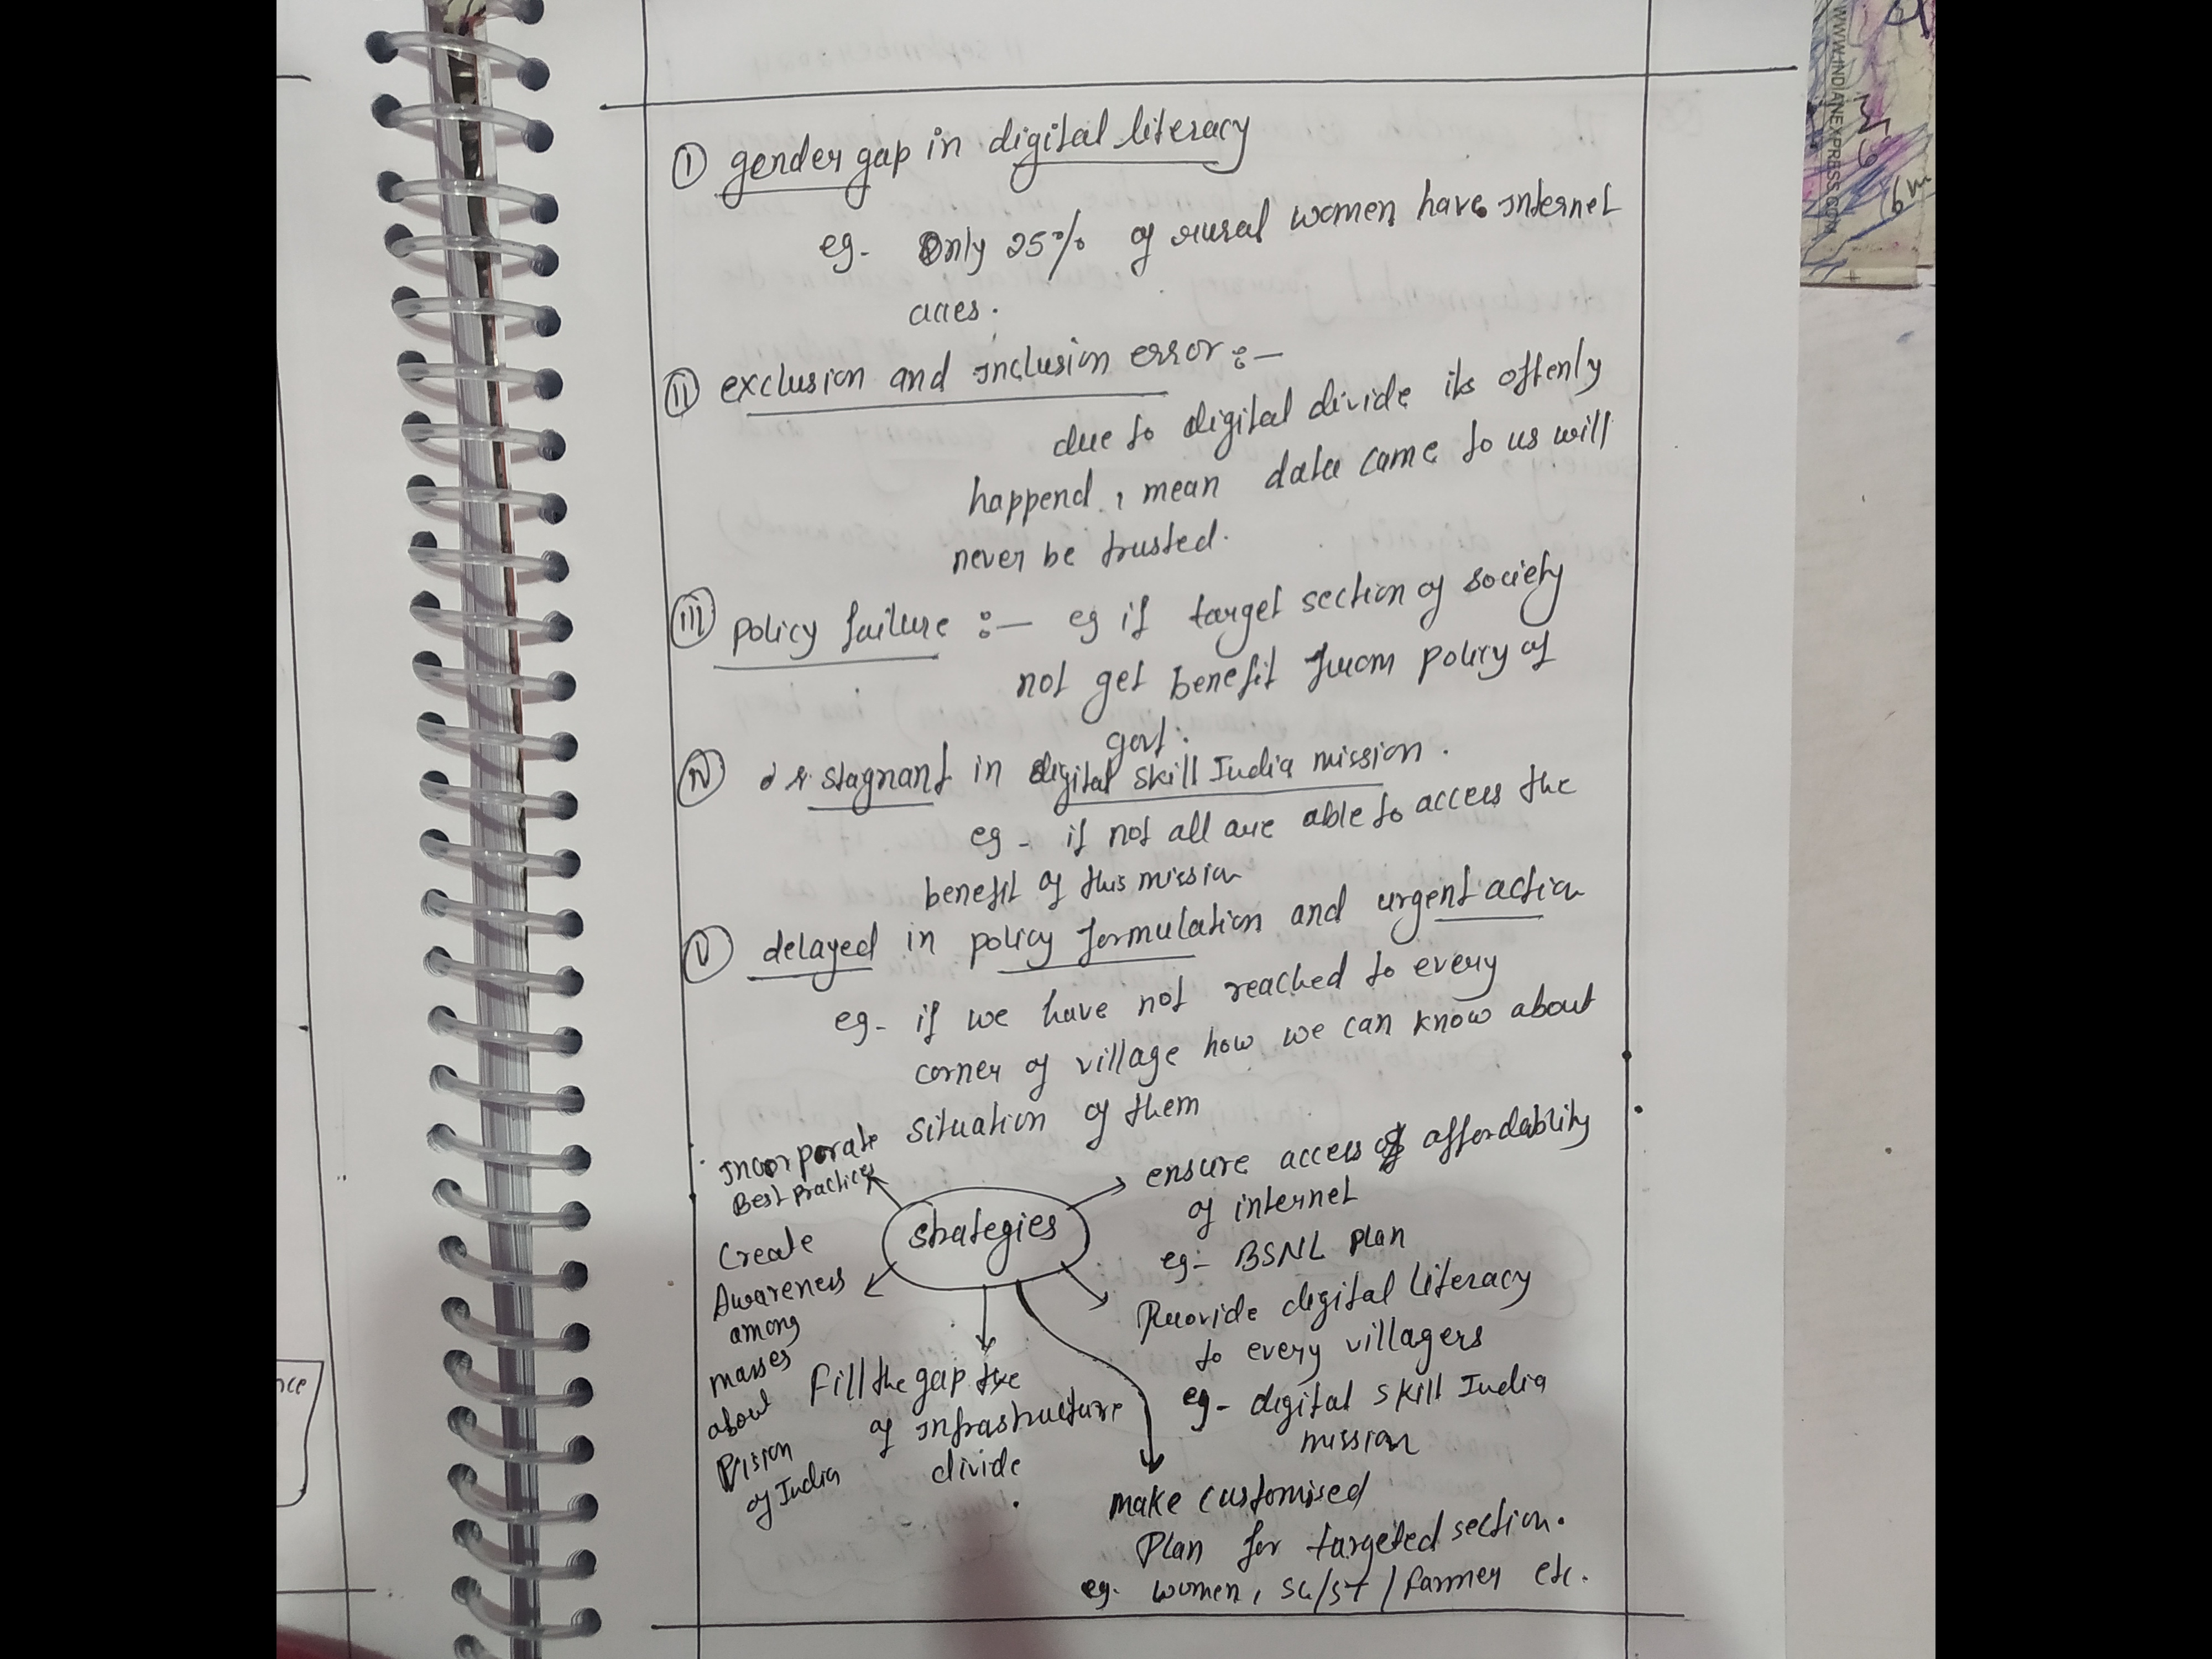 ① gender gap in digital literacy
eg- Only 25% of rural women have internet
acces.
② exclusion and inclusion error :-
due to digital divide its oftenly
happend, mean data came to us will
never be trusted.
③ policy failure :- eg if target section of society
not get benefit from policy of
govt.
④ stagnant in digital skill India mission.
eg - if not all are able to access the
benefit of this mission
⑤ delayed in policy formulation and urgent action
eg- if we have not reached to every
corner of village how we can know about
situation of them
strategies
Incorporate
Best practices
Create
Awareness
among
masses
about
vision
of India
Fill the gap
of infrastructure
divide
ensure access of affordablity
of internet
eg- BSNL plan
Provide digital literacy
to every villagers
eg- digital skill India
mission
make customised
Plan for targeted section.
eg. women, SC/ST / farmer etc.
WWW.INDIANEXPRESS.COM